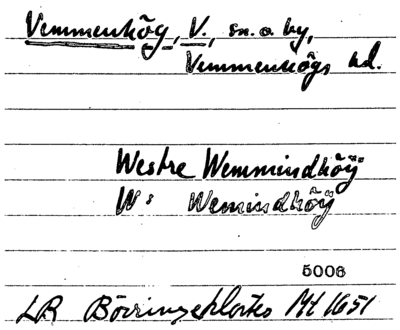 Vemmenhög, V., sn. o. by,
Vemmenhögs hd.
Westre Wemmindhöÿ
W: Wemindhöÿ
5006
LR Börringeklosters Ml 1651